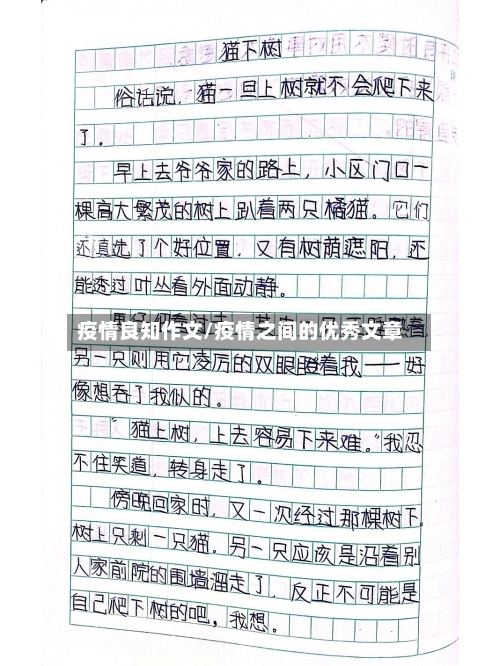 猫下树
俗话说，猫一旦上树就不会爬下来
了。
早上去爷爷家的路上，小区门口一
棵高大繁茂的树上趴着两只橘猫。它们
还真选了个好位置，又有树荫遮阳，还
能透过叶丛看外面动静。
疫情良知作文/疫情之间的优秀文章
另一只则用它凌厉的双眼瞪着我——好
像想吞了我似的。
"猫上树，上去容易下来难。"我忍
不住笑道，转身走了。
傍晚回家时，又一次经过那棵树下，
树上只剩一只猫。另一只应该是沿着别
人家前院的围墙溜走了，反正不可能是
自己爬下树的吧，我想。